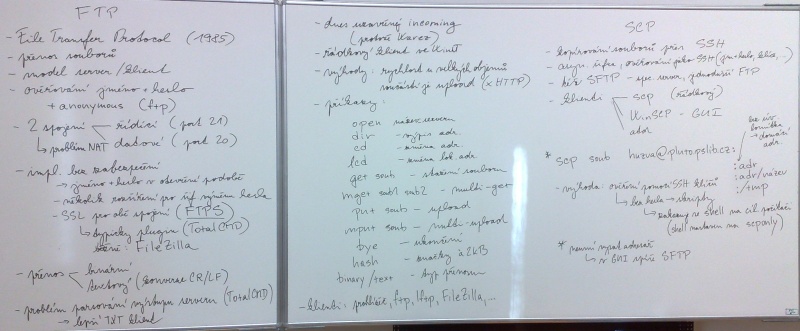 FTP
- File Transfer Protocol (1985)
- přenos souborů
- model server/klient
- ověřování jméno + heslo
+ anonymous (ftp)
- 2 spojení řídící (port 21)
↳ problém NAT datové (port 20)
- impl. bez zabezpečení
→ jméno + heslo v otevřené podobě
- několik rozšíření pro šif. výměnu hesla
- SSL pro obě spojení (FTPS)
↳ typicky plugin (TotalCMD)
FileZilla
- přenos binární
textový (konverze CR/LF)
- problém parsování výstupu serveru (TotalCMD)
→ lepší TXT klient
- dnes uzavřený incoming
(proti warez)
- řádkový klient ve
- výhody: rychlost u velkých objemů
součástí je upload (x HTTP)
- příkazy:
open název serveru
dir - výpis adr.
cd - změna adr.
lcd - změna lok. adr.
get soub - stažení souboru
mget sub1 sub2 - multi-get
put soub - upload
mput soub - multi-upload
bye - ukončení
hash - značky à 2kB
binary/text - typ přenosu
- klienti: prohlížeč, ftp, lftp, FileZilla, ...
SCP
- kopírování souborů přes SSH
- asym. šifra, ověřování jako SSH (jméno+heslo, klíče, ...)
- též SFTP - spec. server, jednodušší FTP
- klienti scp (řádkový)
WinSCP - GUI
adr
bez úv.
lomítka
→ domácí
adr.
* scp soub huzva@pluto.pslib.cz:
:adr
:adr/název
:/tmp
- výhoda: ověření pomocí SSH klíčů
↳ bez hesla → skripty
↳ shell na cíl. počítači
(shell nastaven na scponly)
* neumí vypsat adresář
↳ v GUI SFTP